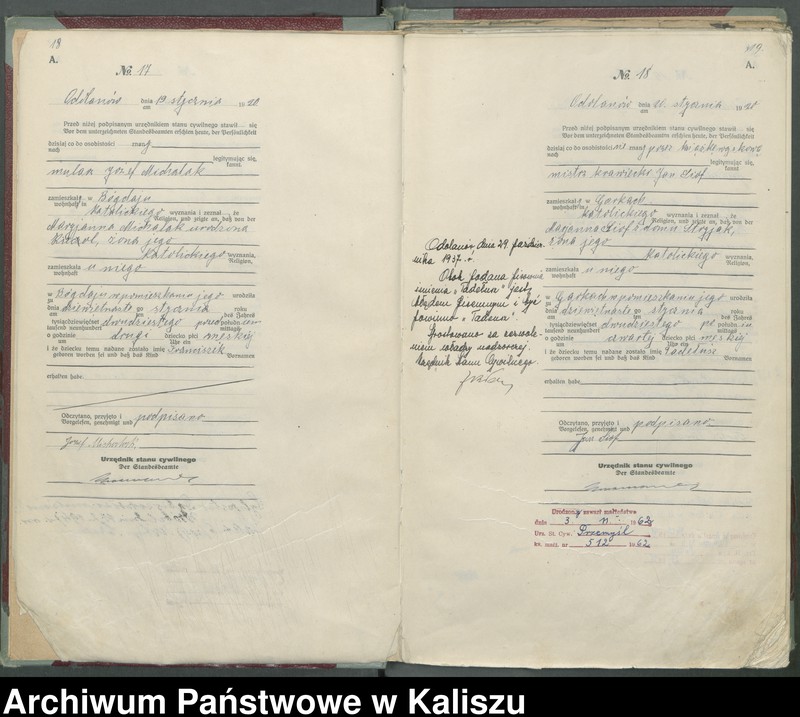 18
A.
No. 17
Odolanów dnia 19 stycznia 1920
am
Przed niżej podpisanym urzędnikiem stanu cywilnego stawił się
Vor dem unterzeichneten Standesbeamten erschien heute, der Persönlichkeit
dzisiaj co do osobistości znany
nach
legitymując się,
kannt
Józef Michalak
zamieszkały w
wohnhaft in
katolickiego wyznania i zeznał że
Religion, und zeigte an, daß von der
Maryanna Michalak urodzona
żona jego
katolickiego wyznania,
Religion,
zamieszkała u niego
wohnhaft
w pomieszkaniu jego urodziła
zu
dnia dziewiętnaste go stycznia roku
am ten des Jahres
tysiącdziewięćset dwudziestego południem
tausend neunhundert mittags
o godzinie drugi dziecko płci męskiej
um Uhr ein
i że dziecku temu nadane zostało imię Franciszek
geboren worden sei und daß das Kind Vornamen
erhalten habe
Odczytano, przyjęto i podpisano
Vorgelesen, genehmigt und
Józef
Urzędnik stanu cywilnego
Der Standesbeamte
19.
A.
No. 18
Odolanów dnia stycznia 1920
am
Przed niżej podpisanym urzędnikiem stanu cywilnego stawił się
Vor dem unterzeichneten Standesbeamten erschien heute, der Persönlichkeit
dzisiaj co do osobistości nie znany przez
nach
legitymując się,
kannt
mistrz krawiecki Jan
zamieszkały w Garkach
wohnhaft in
katolickiego wyznania i zeznał że
Religion, und zeigte an, daß von der
Maryanna z domu
żona jego
katolickiego wyznania,
Religion,
zamieszkała u niego
wohnhaft
w Garkach w pomieszkaniu jego urodziła
zu
dnia dziewiętnaste go stycznia roku
am ten des Jahres
tysiącdziewięćset dwudziestego po południu
tausend neunhundert mittags
o godzinie czwartej dziecko płci męskiej
um Uhr ein
i że dziecku temu nadane zostało imię Tadeusz
geboren worden sei und daß das Kind Vornamen
erhalten habe
Odczytano, przyjęto i podpisano
Vorgelesen, genehmigt und
Jan
Urzędnik stanu cywilnego
Der Standesbeamte
Odolanów, dnia 29 paździer-
nika 1937. r.
Obok podana pisownia
imienia jest
błędem pisemnym i być
powinno
Sprostowano za zezwole-
niem władzy nadzorczej.
Urzędnik Stanu Cywilnego.
zawarł małżeństwo
dnia 3 11 1962
Urz. St. Cyw. Przemyśl
kw. małż. nr 512 1962
Archiwum Państwowe w Kaliszu